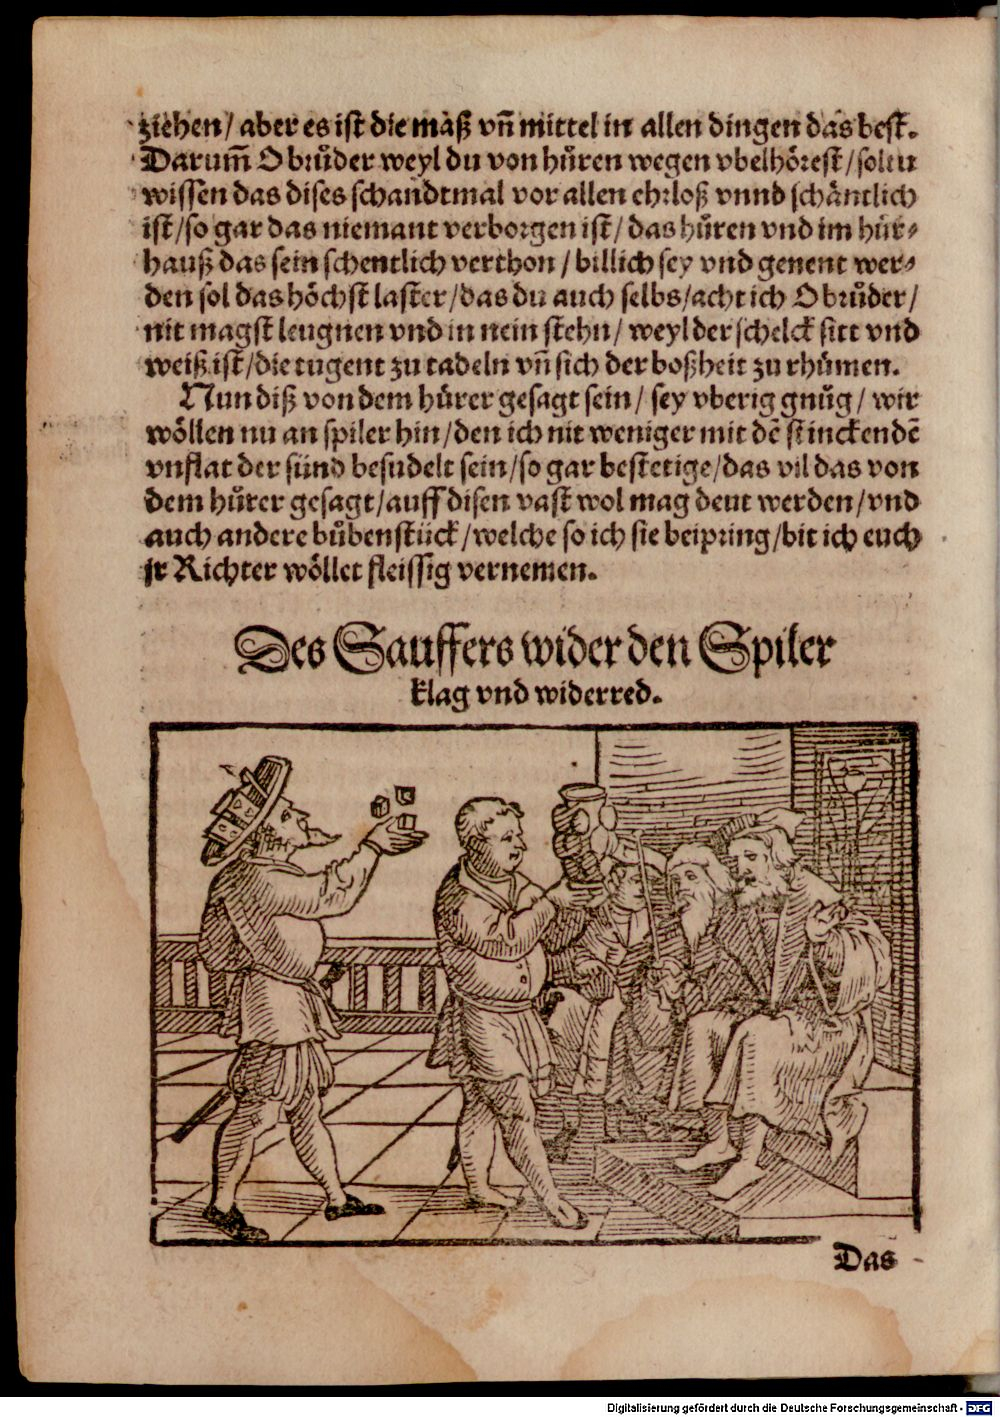 ziehen/ aber es ist die mäß vñ mittel in allen dingen das best.
Darum̃ O bruͦder weyl du von huͦren wegen vbelhörest/soltu
wissen das dises schandtmal vor allen ehrloß vnnd schäntlich
ist/so gar das niemant verborgen ist/ das huͦren vnd im huͦr⸗
hauß das sein schentlich verthon/ billich sey vnd genent wer⸗
den sol das höchst laster/das du auch selbs/acht ich O bruͦder/
nit magst leugnen vnd in nein stehn/ weyl der schelck sitt vnd
weiß ist/die tugent zu tadeln vñ sich der boßheit zu rhuͦmen.
Nun diß von dem huͦrer gesagt sein/ sey vberig gnuͦg/ wir
wöllen nu an spiler hin/den ich nit weniger mit dẽ stinckendẽ
vnflat der sünd besudelt sein/so gar bestetige/das vil das von
dem huͦrer gesagt/auff disen vast wol mag deut werden/vnd
auch andere buͦbenstück/welche so ich sie beipring/bit ich euch
jr Richter wöllet fleissig vernemen.
Des Sauffers wider den Spiler
klag vnd widerred.
Das
Digitalisierung gefördert durch die Deutsche Forschungsgemeinschaft - DFG